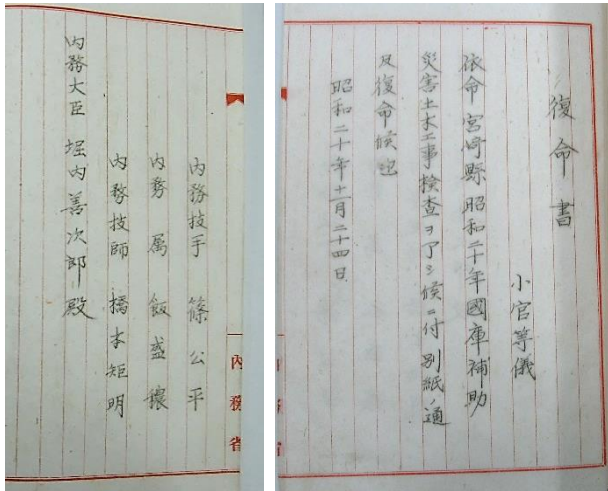 復命書
小官等儀
依命宮崎縣昭和二十年國庫補助
災害土木工事検査ヲ了シ候ニ付別紙ノ通
及復命候也
昭和二十年十一月二十四日
内務技手 篠公平
内務属 飯盛穣
内務技師 橋本矩明
内務大臣 堀内善次郎殿
内務省